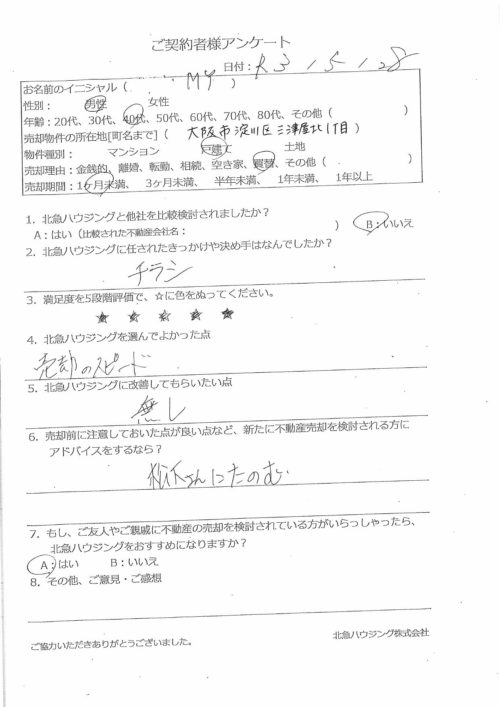 ご契約者様アンケート
日付: R3 / 5 / 28
お名前のイニシャル( MY )
性別: 男性 女性
年齢:20代、30代、40代、50代、60代、70代、80代、その他( )
売却物件の所在地[町名まで]( 大阪市淀川区三津屋北1丁目 )
物件種別: マンション 戸建て 土地
売却理由:金銭的、離婚、転勤、相続、空き家、買替、その他( )
売却期間:1ヶ月未満、 3ヶ月未満、 半年未満、 1年未満、 1年以上
1. 北急ハウジングと他社を比較検討されましたか?
A:はい(比較された不動産会社名: ) B:いいえ
2. 北急ハウジングに任されたきっかけや決め手はなんでしたか?
チラシ
3. 満足度を5段階評価で、☆に色をぬってください。
★ ★ ★ ★ ★
4. 北急ハウジングを選んでよかった点
売却のスピード
5. 北急ハウジングに改善してもらいたい点
無し
6. 売却前に注意しておいた点が良い点など、新たに不動産売却を検討される方に
アドバイスをするなら?
松下さんにたのむ
7. もし、ご友人やご親戚に不動産の売却を検討されている方がいらっしゃったら、
北急ハウジングをおすすめになりますか?
A:はい B:いいえ
8. その他、ご意見・ご感想
ご協力いただきありがとうございました。
北急ハウジング株式会社